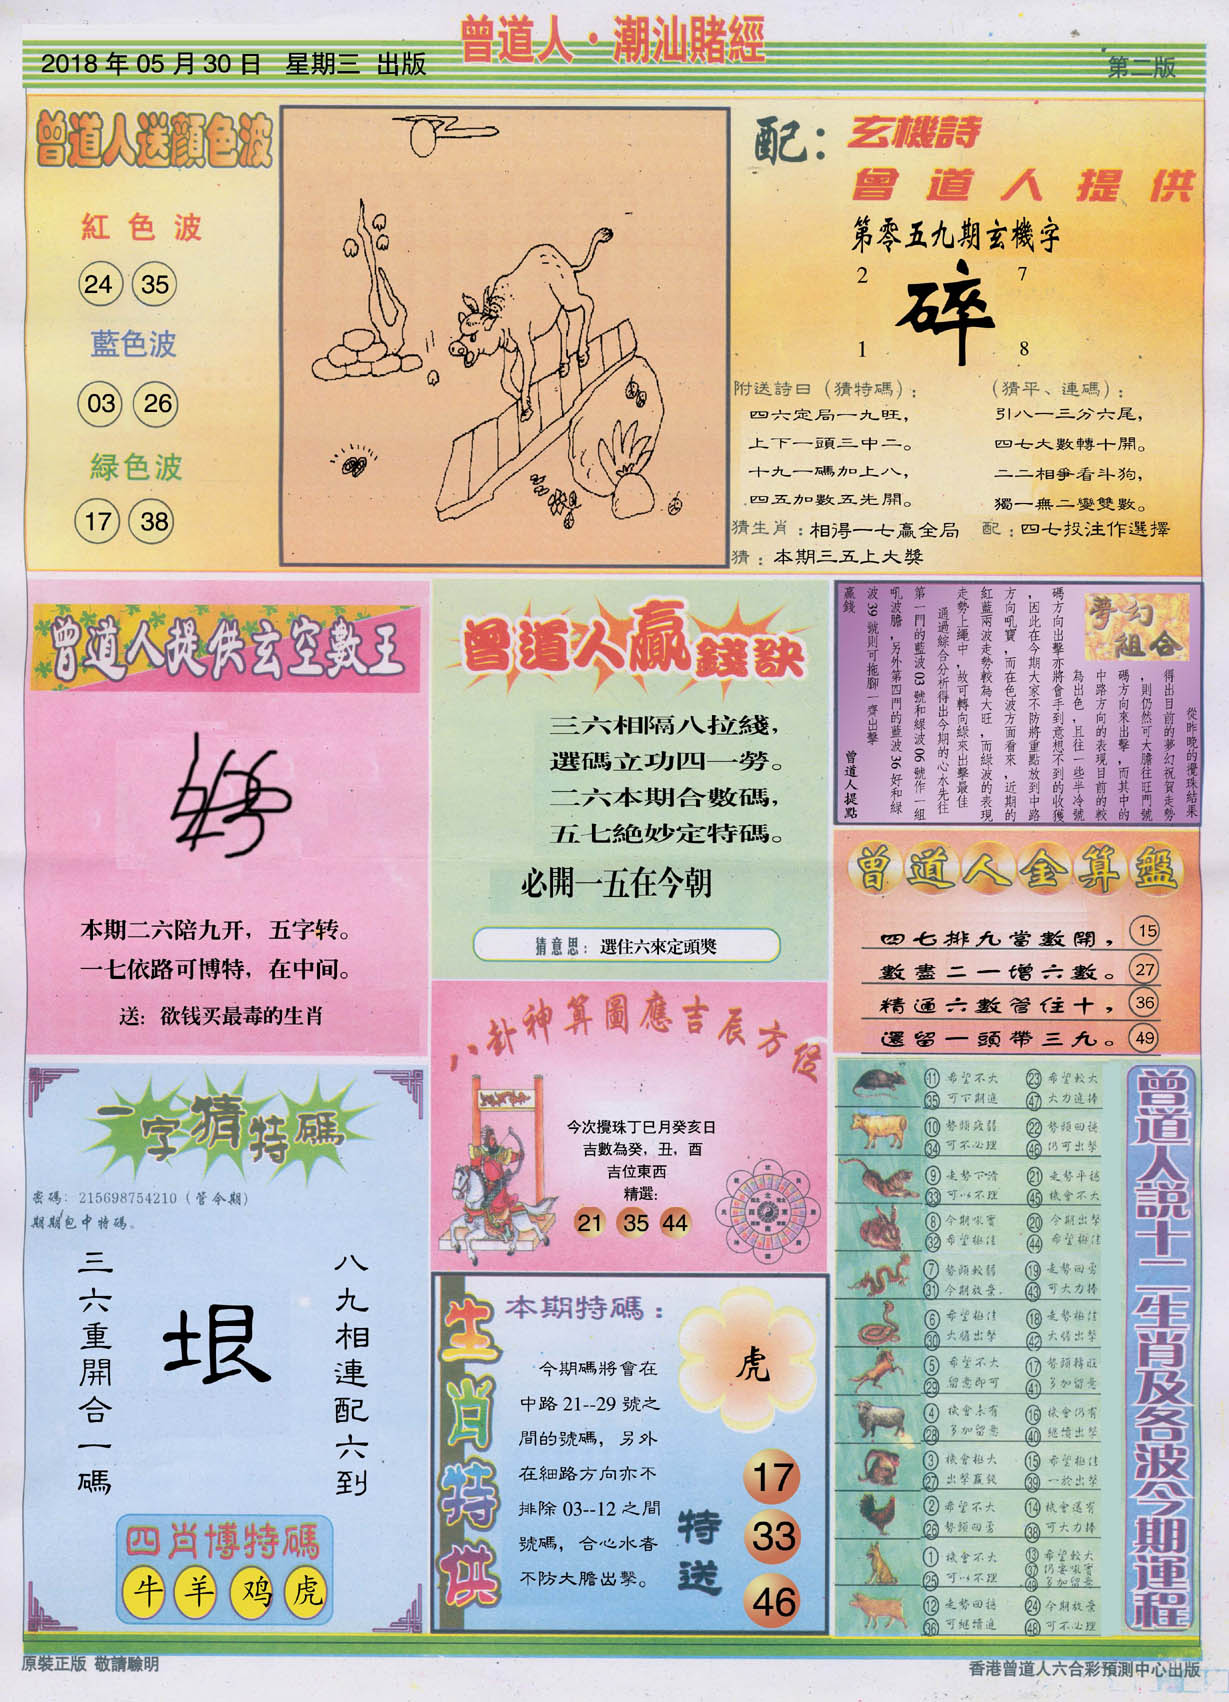 曾道人·潮汕賭經
2018年05月30日 星期三 出版
第二版
曾道人送顏色波
紅色波
24 35
藍色波
03 26
緑色波
17 38
配：玄機詩
曾道人提供
第零五九期玄機字
2 7
碎
1 8
附送詩曰（猜特碼）：
四六定局一九旺，
上下一頭三中二。
十九一碼加上八，
四五加數五先開。
（猜平、連碼）：
引八一三分六尾，
四七大數轉十開。
二二相爭看斗狗，
獨一無二變雙數。
猜生肖：相得一七贏全局
配：四七投注作選擇
猜：本期三五上大獎
曾道人提供玄空數王
本期二六陪九开，五字转。
一七依路可博特，在中间。
送：欲钱买最毒的生肖
曾道人贏錢訣
三六相隔八拉綫，
選碼立功四一勞。
二六本期合數碼，
五七絕妙定特碼。
必開一五在今朝
猜意思：選住六來定頭獎
夢幻組合
從昨晚的攪珠結果
得出目前的夢幻祝賀走勢
，則仍然可大膽往旺門號
碼方向來出擊，而其中的
中路方向的表現目前的較
為出色，且往一些半冷號
碼方向出擊亦將會手到意想不到的收獲
，因此在今期大家不防將重點放到中路
方向吼寶，而在色波方面看來，近期的
紅藍兩波走勢較為大旺，而綠波的表現
走勢上繩中，故可轉向綠來出擊最佳
通過綜合分析得出今期的心水先往
第一門的藍波03號和綠波06號作一組
吼波膽，另外第四門的藍波36好和綠
波39號則可拖腳一齊出擊
贏錢
曾道人提點
曾道人金算盤
四七排九當數開， 15
數盡二一增六數。 27
精通六數管住十， 36
還留一頭帶三九。 49
一字猜特碼
密碼：215698754210（管今期）
期期包中特碼。
八九相連配六到
垠
三六重開合一碼
四肖博特碼
牛 羊 鸡 虎
八卦神算圖應吉辰方位
今次攪珠丁巳月癸亥日
吉數為癸，丑，酉
吉位東西
精選：
21 35 44
生肖特供
本期特碼：
虎
今期碼將會在
中路21--29號之
間的號碼，另外
在細路方向亦不
排除03--12之間
號碼，合心水者
不防大膽出擊。
特送
17
33
46
曾道人說十二生肖及各波今期運程
11 希望不大 23 希望較大
35 可下期進 47 大力進捧
10 勢頭疲弱 22 勢頭回揚
34 可不必理 46 仍可出擊
9 走勢下滑 21 走勢平穩
33 可以不理 45 機會不大
8 今期吼寶 20 今期出擊
32 希望極佳 44 希望極佳
7 勢頭較弱 19 走勢回勇
31 今期放棄 43 可大力捧
6 希望極佳 18 走勢極佳
30 大膽出擊 42 大膽出擊
5 希望不大 17 勢頭轉旺
29 留意即可 41 多加留意
4 機會未有 16 機會仍有
28 多加留意 40 繼續出擊
3 機會極大 15 希望極佳
27 出擊贏錢 39 一於出擊
2 希望不大 14 機會還有
26 勢頭回勇 38 可大力捧
1 機會不大 13 希望較大
25 可以不理 37 仍要吼寶
49 多加留意
12 走勢回揚 24 今期放棄
36 可繼續進 48 可不必理
原裝正版 敬請驗明
香港曾道人六合彩預測中心出版